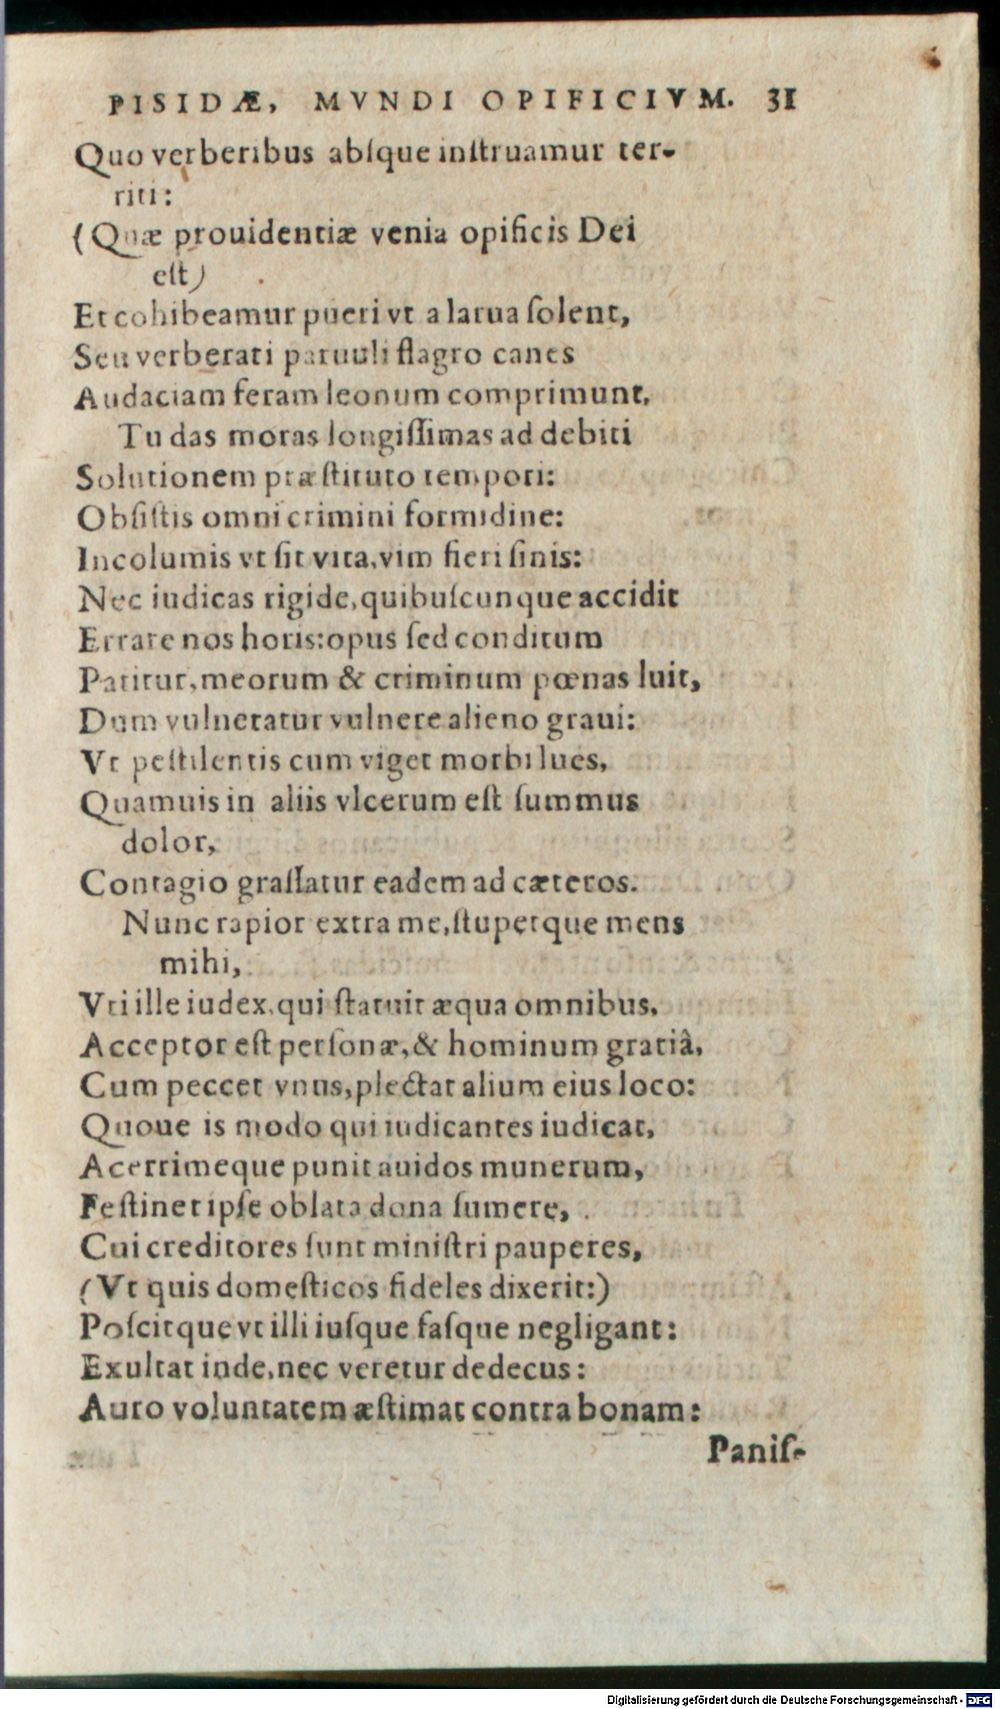 PISIDÆ, MVNDI OPIFICIVM. 31
Quo verberibus abſque inſtruamur ter-
riti:
(Quæ prouidentiæ venia opificis Dei
eſt)
Et cohibeamur pueri vt a larua ſolent,
Seu verberati paruuli flagro canes
Audaciam feram leonum comprimunt,
Tu das moras longiſſimas ad debiti
Solutionem præſtituto tempori:
Obſiſtis omni crimini formidine:
Incolumis vt ſit vita, vim fieri ſinis:
Nec iudicas rigide, quibuſcunque accidit
Errare nos horis: opus ſed conditum
Patitur, meorum & criminum pœnas luit,
Dum vulneratur vulnere alieno graui:
Vt peſtilentis cum viget morbi lues,
Quamuis in aliis vlcerum eſt ſummus
dolor,
Contagio graſſatur eadem ad cæteros.
Nunc rapior extra me, ſtupetque mens
mihi,
Vti ille iudex, qui ſtatuit æqua omnibus,
Acceptor eſt perſonæ, & hominum gratiâ,
Cum peccet vnus, plectat alium eius loco:
Quoue is modo qui iudicantes iudicat,
Acerrimeque punit auidos munerum,
Feſtinet ipſe oblata dona ſumere,
Cui creditores ſunt miniſtri pauperes,
(Vt quis domeſticos fideles dixerit:)
Poſcitque vt illi iuſque faſque negligant:
Exultat inde, nec veretur dedecus:
Auro voluntatem æſtimat contra bonam:
Paniſ-
Digitalisierung gefördert durch die Deutsche Forschungsgemeinschaft - DFG